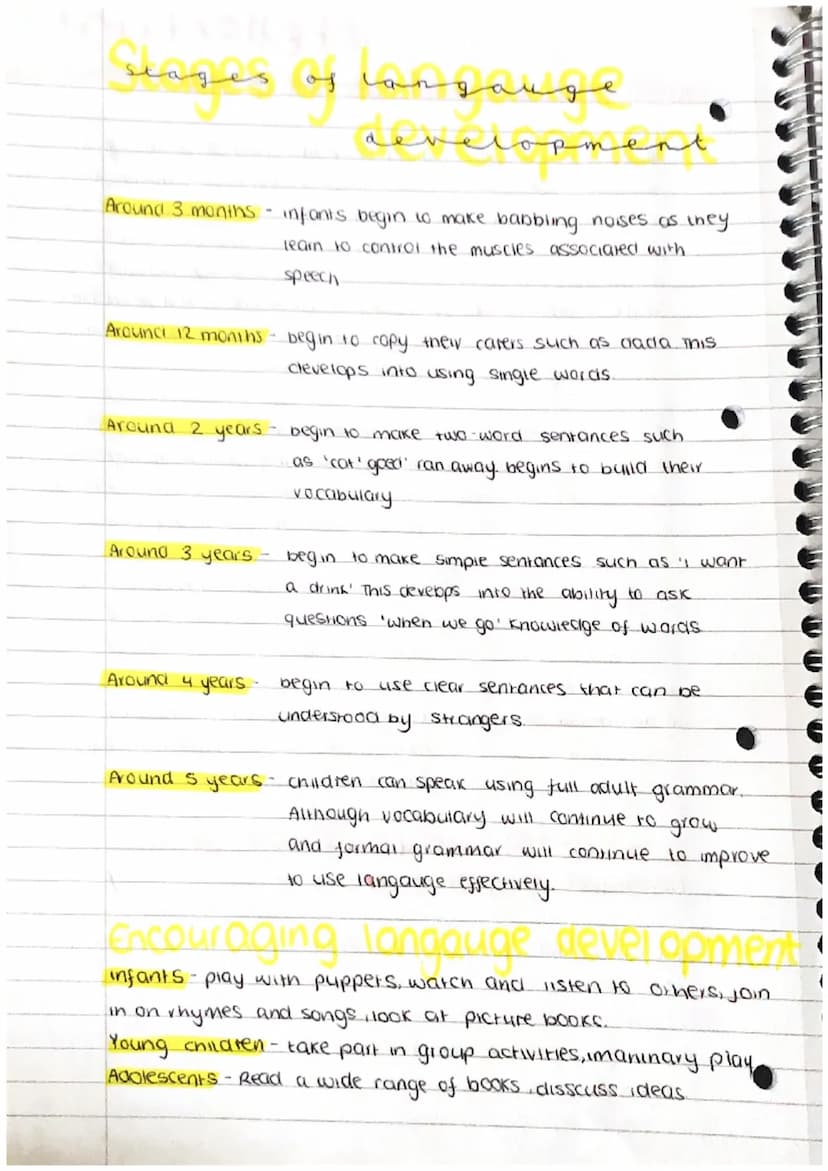 Stages of langauge
development
Around 3 months - infants begin to make babbling noises as they
learn to control the muscles associated with
speech
Around 12 months - begin to copy their carers such as dada this
develops into using single words.
Around 2 years - begin to make two-word sentances such
as 'cat' goed' ran away. begins to build their
vocabulary
Around 3 years - begin to make simple sentances such as 'i want
a drink' This develops into the ability to ask
questions 'when we go' knowledge of words
Around 4 years - begin to use clear sentances that can be
understood by strangers.
Around 5 years - children can speak using full adult grammar.
Although vocabulary will continue to grow
and formal grammar will continue to improve
to use langauge effectively.
Encouraging langauge development
infants - play with puppets, watch and listen to others, join
in on rhymes and songs, look at picture books.
Young children - take part in group activities, imaninary play
Adolescents - Read a wide range of books, disscuss ideas